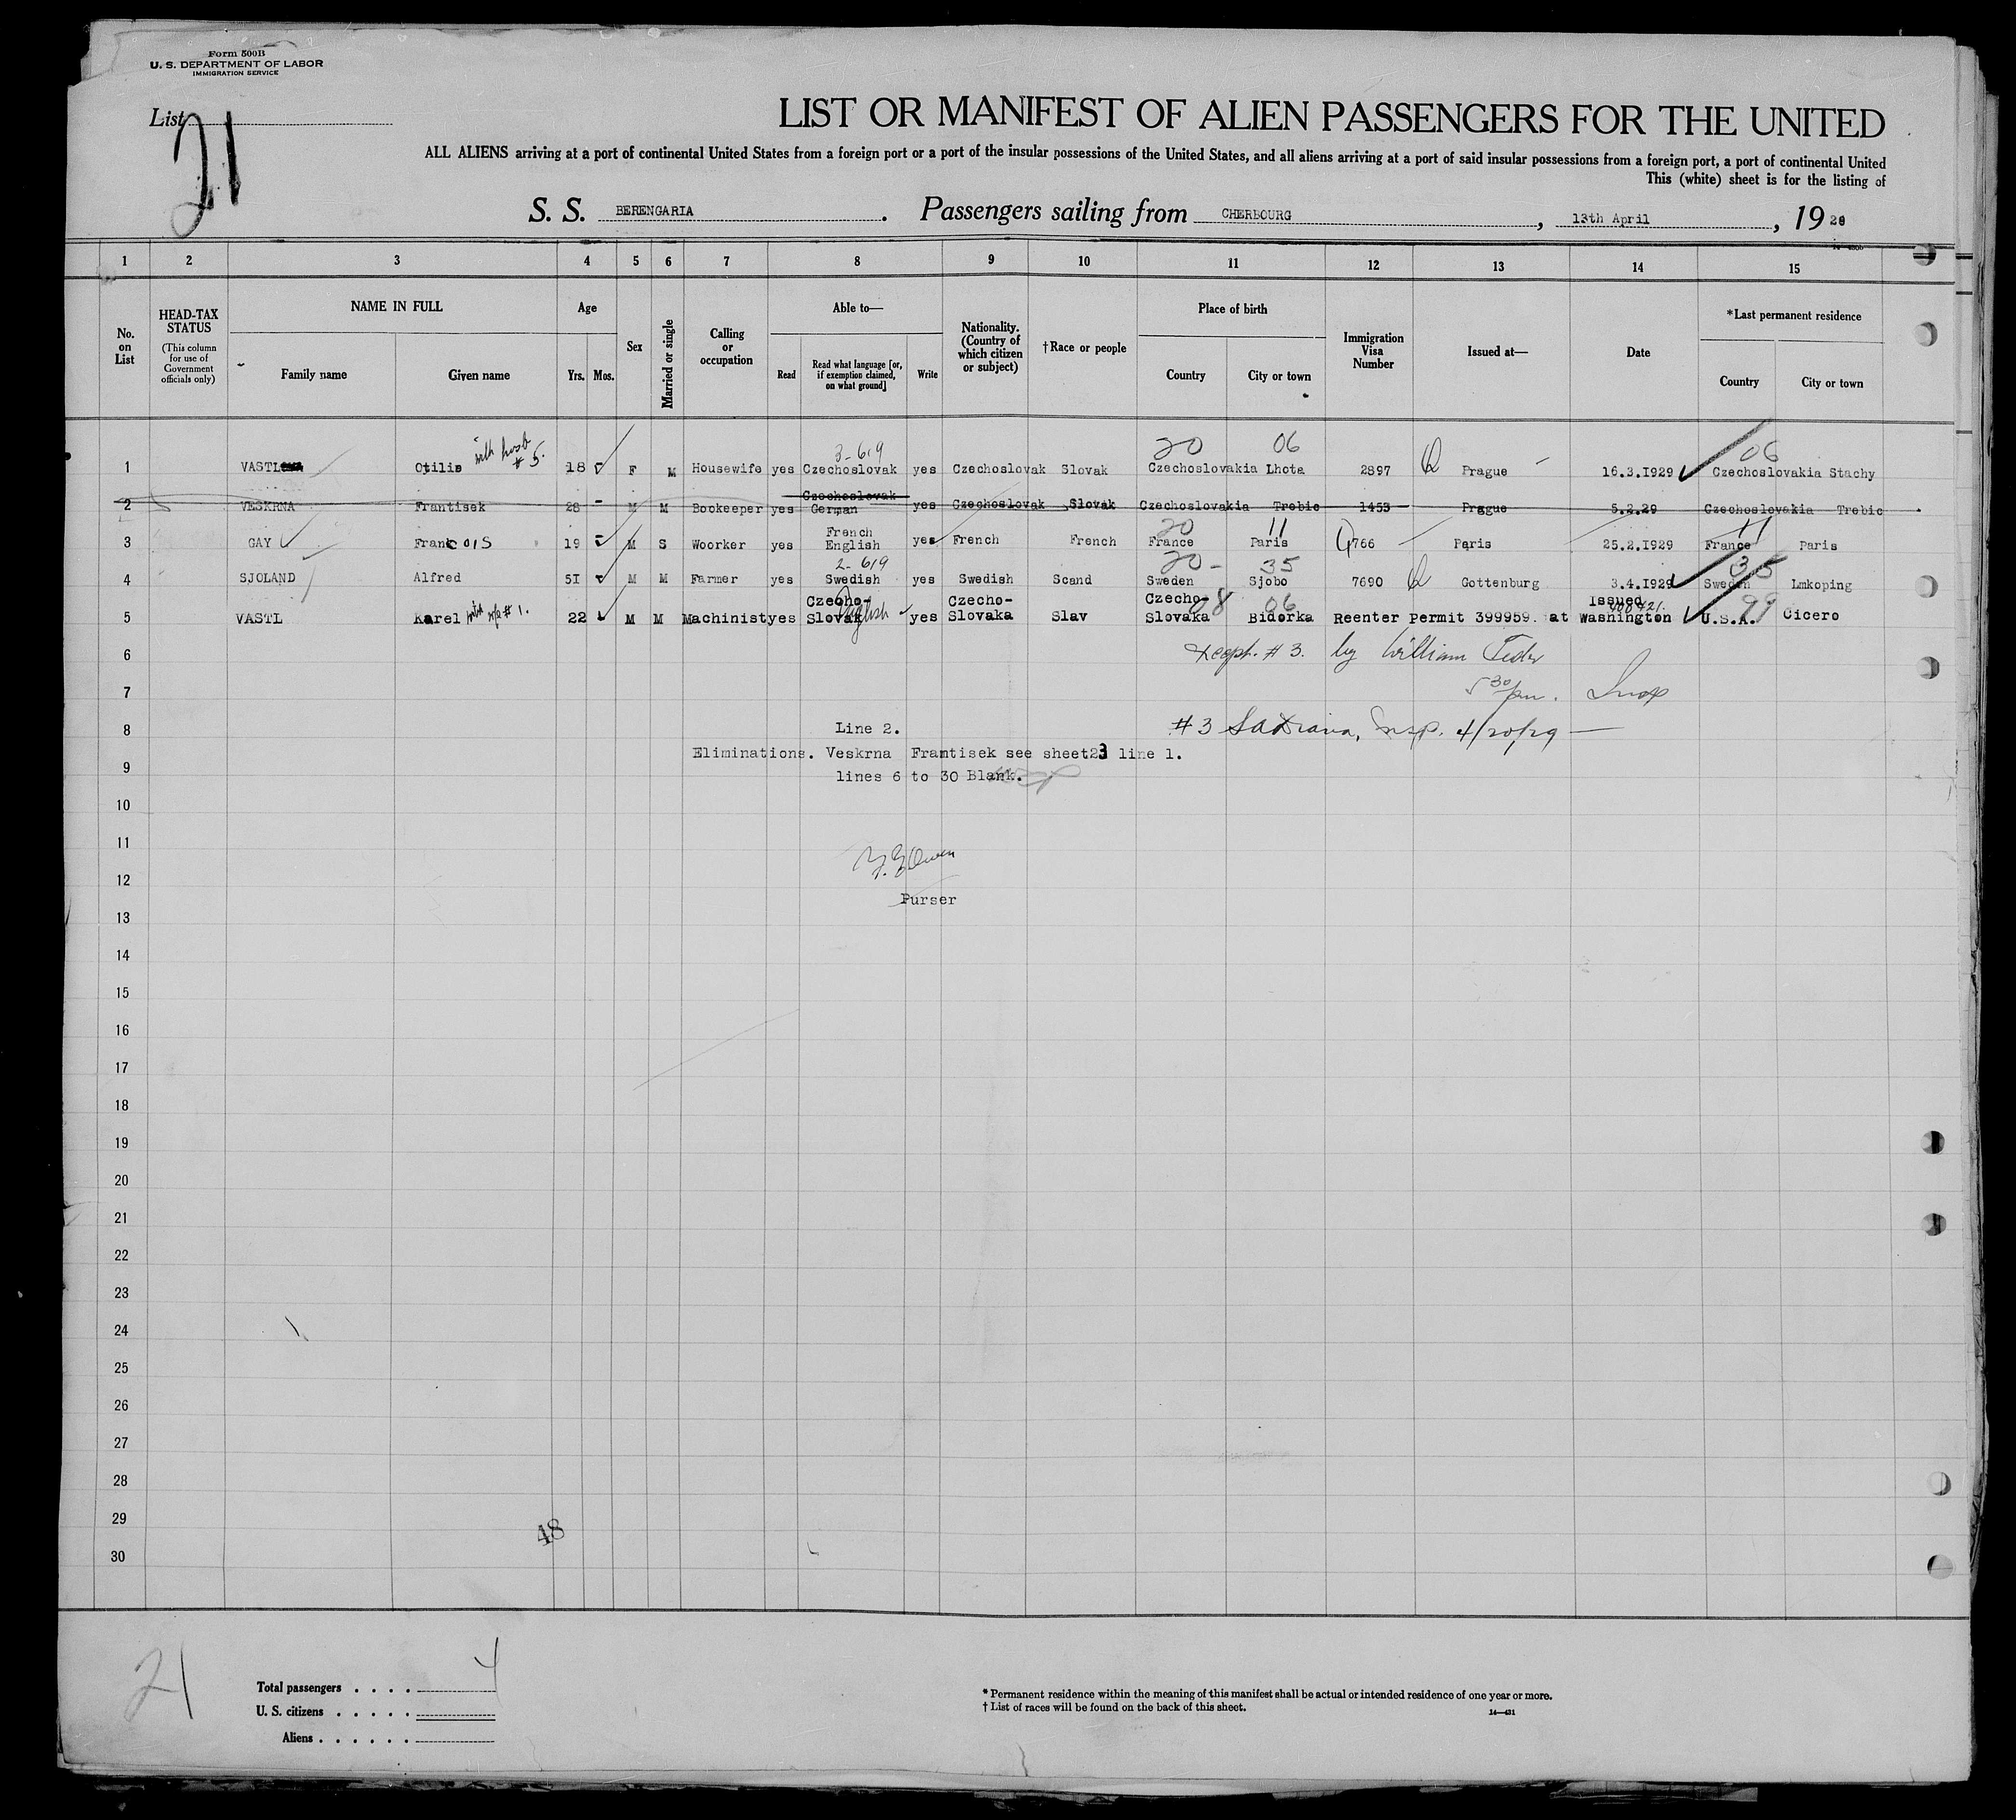 Form 500B
U. S. DEPARTMENT OF LABOR
IMMIGRATION SERVICE
List 21
LIST OR MANIFEST OF ALIEN PASSENGERS FOR THE UNITED
ALL ALIENS arriving at a port of continental United States from a foreign port or a port of the insular possessions of the United States, and all aliens arriving at a port of said insular possessions from a foreign port, a port of continental United
This (white) sheet is for the listing of
S. S. BERENGARIA. Passengers sailing from CHERBOURG, 13th April, 1929
1 2 3 4 5 6 7 8 9 10 11 12 13 14 15
No. on List
HEAD-TAX STATUS (This column for use of Government officials only)
NAME IN FULL Family name Given name
Age Yrs. Mos.
Sex
Married or single
Calling or occupation
Able to— Read Read what language [or, if exemption claimed, on what ground] Write
Nationality. (Country of which citizen or subject)
†Race or people
Place of birth Country City or town
Immigration Visa Number
Issued at—
Date
*Last permanent residence Country City or town
with husb # 5. 3-619 20 06 06
1 VASTL Otilie 18 F M Housewife yes Czechoslovak yes Czechoslovak Slovak Czechoslovakia Lhota 2897 Prague 16.3.1929 Czechoslovakia Stachy
2 VESKRNA Frantisek 28 M M Bookeeper yes Czechoslovak German yes Czechoslovak Slovak Czechoslovakia Trebic 1453 Prague 5.2.29 Czechoslovakia Trebic
20 11 11
3 GAY Francois 19 M S Woorker yes French English yes French French France Paris 4766 Paris 25.2.1929 France Paris
2-619 20- 35 35
4 SJOLAND Alfred 51 M M Farmer yes Swedish yes Swedish Scand Sweden Sjobo 7690 Gottenburg 3.4.1929 Sweden Lmkoping
08 06 99
5 VASTL Karel with wife # 1. 22 M M Machinist yes Czecho-Slovak English yes Czecho-Slovaka Slav Czecho-Slovaka Bidorka Reenter Permit 399959. at Issued Washington 408421. U.S.A. Cicero
6 # 3. by William
7 5 30 pm.
8 Line 2. #3 Insp. 4/20/29
Eliminations. Veskrna Framtisek see sheet23 line 1.
9 lines 6 to 30 Blank.
10
11
12
Purser
13
14
15
16
17
18
19
20
21
22
23
24
25
26
27
28
29
48
30
21
Total passengers . . . . 4
U. S. citizens . . . . .
Aliens . . . . . .
* Permanent residence within the meaning of this manifest shall be actual or intended residence of one year or more.
† List of races will be found on the back of this sheet.
14—431